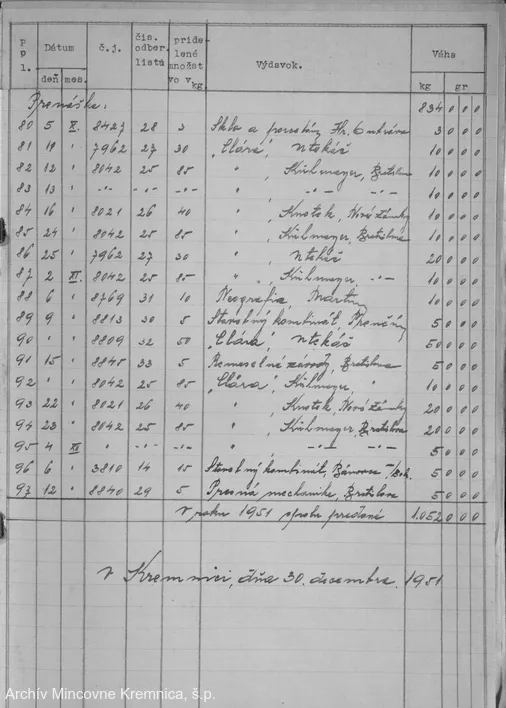 P p l. Dátum č.j. čís. odber. listú pride lené množst vo v kg. Výdavok. Váha
deň mes. kg gr
Prenáška: 834 000
80 5 X. 8427 28 3 Sklo a porcelán, Hr. 3 000
81 11 " 7962 27 30 "Clára", 10 000
82 12 " 8042 25 85 " , Kühlmayer, Bratislava 10 000
83 13 " -"- -"- " , -"- -"- 10 000
84 16 " 8021 26 40 " , Knotek, Nové Zámky 10 000
85 24 " 8042 25 85 " , Kühlmayer, Bratislava 10 000
86 25 " 7962 27 30 " , 20 000
87 2 XI. 8042 25 85 " " , Kühlmayer, -"- 10 000
88 6 " 8769 31 10 Neografia, Martin 10 000
89 9 " 8813 30 5 Stavebný kombinát, Trenčín 5 000
90 " " 8809 32 50 "Clára", 50 000
91 15 " 8845 33 5 Remeselné závody, Bratislava 5 000
92 " " 8042 25 85 "Clára", Kühlmayer, " 10 000
93 22 " 8021 26 40 " , Knotek, Nové Zámky 20 000
94 23 " 8042 25 85 " , Kühlmayer, Bratislava 20 000
95 4 XII " -"- -"- " , -"- -"- 5 000
96 6 " 3810 14 15 Stavebný kombinát, Bánovce 5 000
97 12 " 8840 29 5 Presná mechanika, Bratislava 5 000
V roku 1951 spolu predané 1.052 000
V Kremnici, dňa 30. decembra 1951
Archív Mincovne Kremnica, š.p.